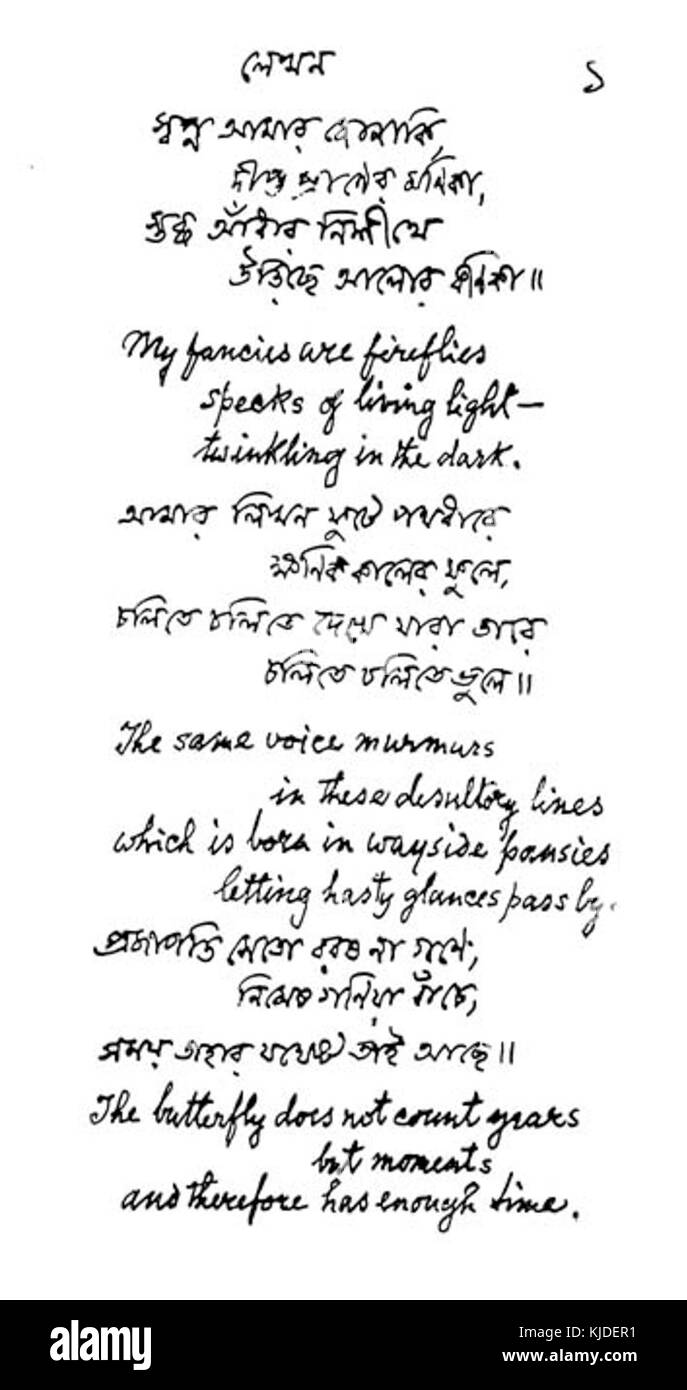 লেখন ১
স্বপ্ন আমার জোনাকি,
দীপ্ত প্রাণের মণিকা,
স্তব্ধ আঁধার নিশীথে
উড়িছে আলোর কণিকা॥
My fancies are fireflies
specks of living light—
twinkling in the dark.
আমার লিখন ফুটে পথধারে
ক্ষণিক কালের ফুলে,
চলিতে চলিতে দেখে যারা তারে
চলিতে চলিতে ভুলে॥
The same voice murmurs
in these desultory lines
which is born in wayside pansies
letting hasty glances pass by.
প্রজাপতি সেতো বরষ না গণে,
নিমেষ গণিয়া বাঁচে,
সময় তাহার যথেষ্ট তাই আছে॥
The butterfly does not count years
but moments
and therefore has enough time.
alamy
Image ID: KJDER1
www.alamy.com